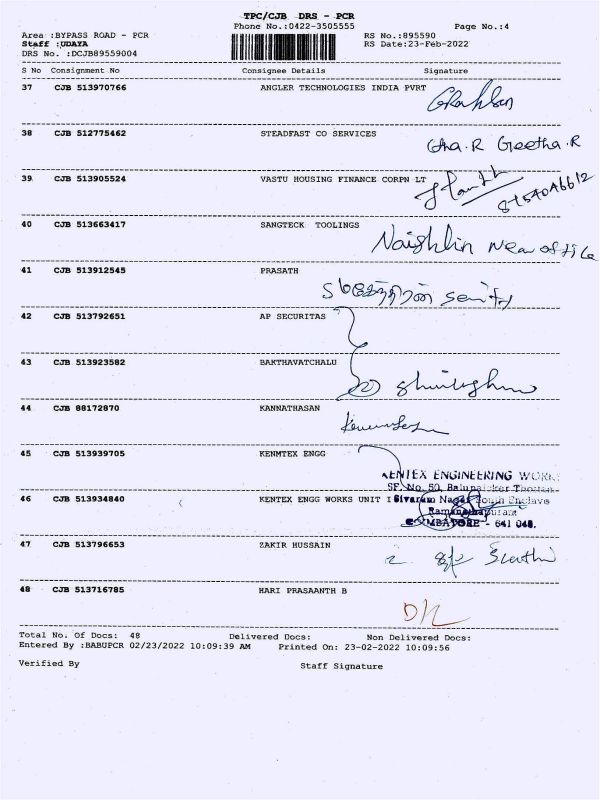 TPC/CJB DRS - PCR
Phone No.:0422-3505555 Page No.:4
Area :BYPASS ROAD - PCR RS No.:895590
Staff :UDAYA RS Date:23-Feb-2022
DRS No. :DCJB89559004
S No Consignment No Consignee Details Signature
37 CJB 513970766 ANGLER TECHNOLOGIES INDIA PVRT
38 CJB 512775462 STEADFAST CO SERVICES
Geetha.R
39 CJB 513905524 VASTU HOUSING FINANCE CORPN LT
40 CJB 513663417 SANGTECK TOOLINGS
41 CJB 513912545 PRASATH
42 CJB 513792651 AP SECURITAS
43 CJB 513923582 BAKTHAVATCHALU
44 CJB 88172870 KANNATHASAN
45 CJB 513939705 KENMTEX ENGG
KENTEX ENGINEERING WORKS
SF. No. 50,
46 CJB 513934840 KENTEX ENGG WORKS UNIT I Sivaram Nagar South Enclave
Ramanathapuram
COIMBATORE - 641 045.
47 CJB 513796653 ZAKIR HUSSAIN
48 CJB 513716785 HARI PRASAANTH B
Total No. Of Docs: 48 Delivered Docs: Non Delivered Docs:
Entered By :BABUPCR 02/23/2022 10:09:39 AM Printed On: 23-02-2022 10:09:56
Verified By Staff Signature